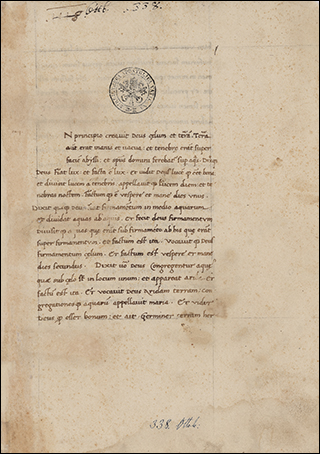 Ott. 338
1
N principio creavit Deus cęlum et terrã. Terra
autẽ erat inanis et vacua: et tenebrę erãt super
faciẽ abyssi: et spũs domini ferebat͛ sup aqs. Dixitq
Deus Fiat lux. et facta ẽ lux. Et vidit Deus lucẽ ꝙ eẽt bona
et divisit lucem a tenebris. appellavitꝙ lucem diem: et te
nebras noctem. factumꝙ ẽ vespere et mane dies unus.
Dixit quoꝙ deus fiat firmamẽtum in medio aquarum
et dividat aquas ab aquis. Et fecit deus firmamentum
Divisitꝙ aquas quę erãt sub firmamẽto ab his quę erãt
super firmamentum. et factum est ita. Vocavitꝙ Deus
firmamentum cęlum. Et factum est vespere et mane
dies secundus. Dixit vero deus Congregentur aquę
quę sub cęlo st in locum unum: et appareat arida. Et
factũ est ita. Et vocavit Deus Aridam terram: con
gregationesꝙ aquarum appellavit maria. Et vidit
Deus ꝙ esset bonum: et ait. Germinet terram her
338. Ott.